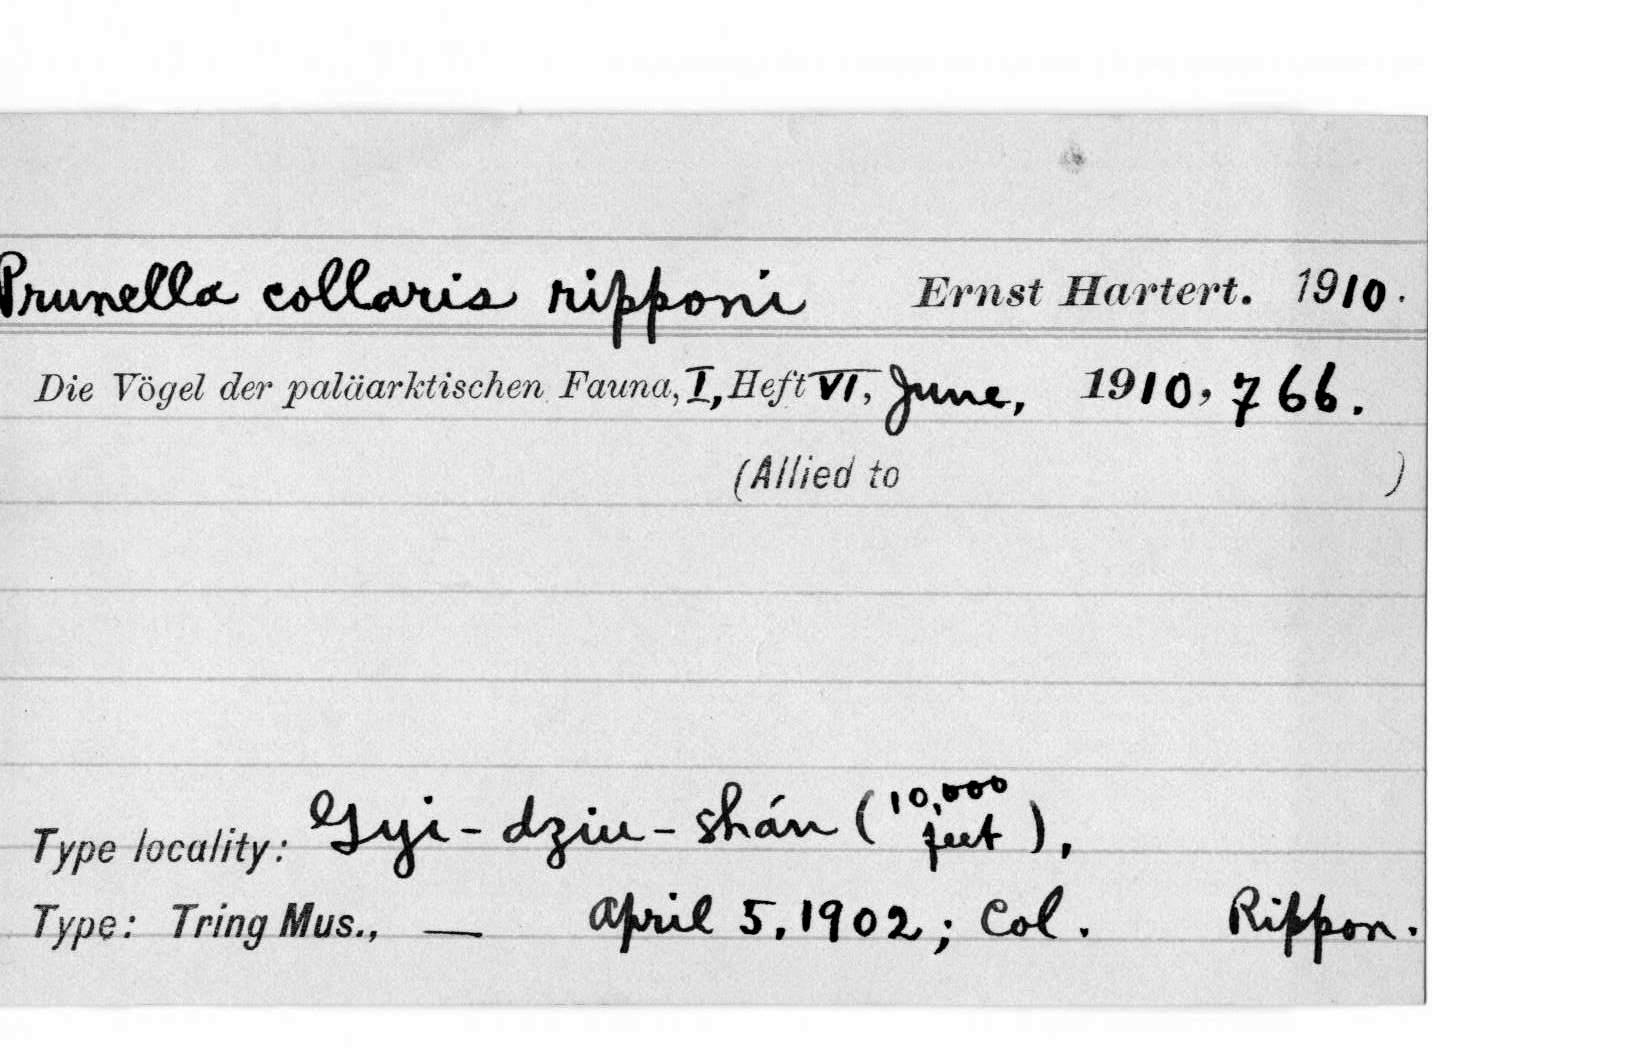 Prunella collaris ripponi Ernst Hartert. 1910.
Die Vögel der paläarktischen Fauna, I, Heft VI, June, 1910, 766.
(Allied to )
Type locality: Gyi-dziu-shán (10,000 feet),
Type: Tring Mus., — April 5, 1902; Col. Rippon.